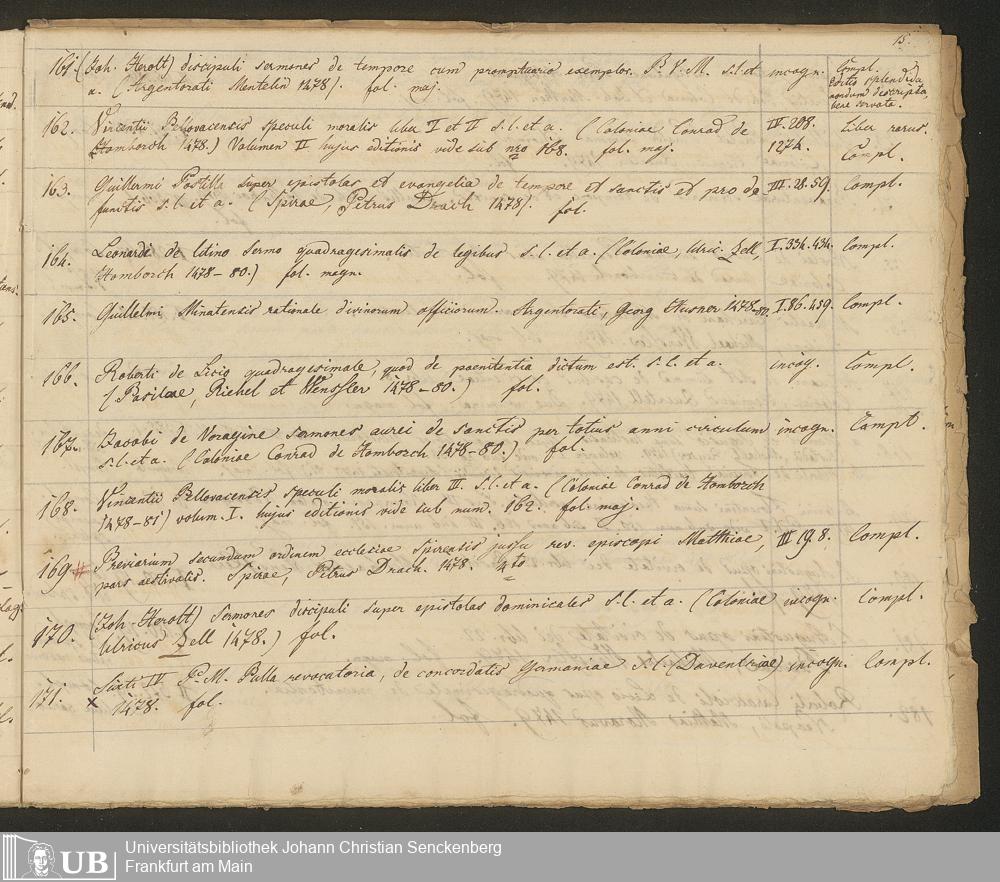 15.
161. (Joh. Herolt) discipuli sermones de tempore cum promptuario exemplor. B. V. M. s. l. et incogn. Compl.
a. (Argentorati Mentelin 1478). fol. maj. Editio splendida
nondum descripta,
bene servata.
162. Vincentii Bellovacensis speculi moralis liber I et II s. l. et a. (Coloniae Conrad de IV. 208. Liber rarus.
Homborch 1478.) Volumen II hujus editionis vide sub nro 168. fol. maj. 1274. Compl.
163. Guillermi Postilla super epistolas et evangelia de tempore et sanctis et pro de III. 28. 59. Compl.
functis s. l. et a. (Spirae, Petrus Drach 1478). fol.
164. Leonardi de Utino sermo quadragesimalis de legibus s. l. et a. (Coloniae, Ulric. Zell, I. 334. 434. Compl.
Homborch 1478-80.) fol. magn.
165. Guillelmi Minatensis rationale divinorum officiorum. Argentorati, Georg Husner 1478-80. I. 86. 459. Compl.
166. Roberti de Licio quadragesimale, quod de paenitentia dictum est. s. l. et a. incog. Compl.
(Basileae, Richel et Wenssler 1478-80.) fol.
167. Jacobi de Voragine sermones aurei de sanctis per totius anni circulum incogn. Compl.
s. l. et a. (Coloniae Conrad de Homborch 1478-80.) fol.
168. Vincentii Bellovacensis speculi moralis liber III. s. l. et a. (Coloniae Conrad de Homborch
1478-81) volum. I. hujus editionis vide sub num. 162. fol. maj.
169 # Breviarium secundum ordinem ecclesiae Spirensis jussu rev. episcopi Matthiae, III 198. Compl.
pars aestivalis. Spirae, Petrus Drach. 1478. 4to
170. (Joh. Herolt) Sermones discipuli super epistolas dominicales s. l. et a. (Coloniae incogn. Compl.
Ulricus Zell 1478.) fol.
171. Sixti IV P. M. Bulla revocatoria, de concordatis Germaniae s. l. (Daventriae) incogn. Compl.
x 1478. fol.
UB Universitätsbibliothek Johann Christian Senckenberg
Frankfurt am Main